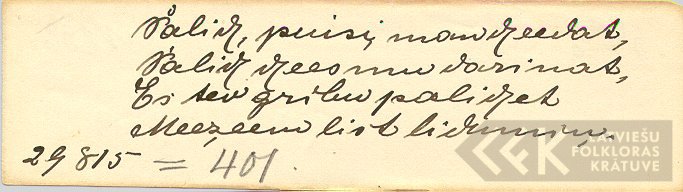 Palidz, puisi, man dzeedat,
Palidz dzeesmu darinat,
Es tev gribu palidzet
Meezeem list lidumiņu.
29815 = 401.
LATVIEŠU
FOLKLORAS
KRĀTUVE